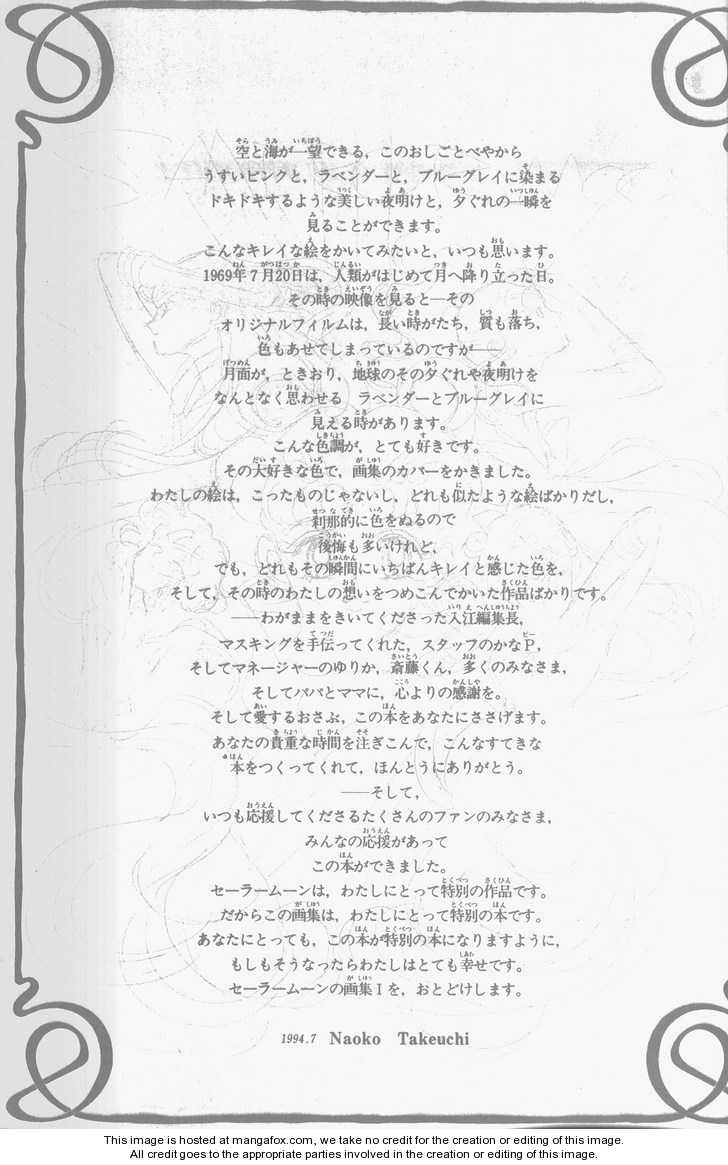 空と海が一望できる，このおしごとべやから
うすいピンクと，ラベンダーと，ブルーグレイに染まる
ドキドキするような美しい夜明けと，夕ぐれの一瞬を
見ることができます。
こんなキレイな絵をかいてみたいと，いつも思います。
1969年7月20日は，人類がはじめて月へ降り立った日。
その時の映像を見ると―その
オリジナルフィルムは，長い時がたち，質も落ち，
色もあせてしまっているのですが――
月面が，ときおり，地球のその夕ぐれや夜明けを
なんとなく思わせる　ラベンダーとブルーグレイに
見える時があります。
こんな色調が，とても好きです。
その大好きな色で，画集のカバーをかきました。
わたしの絵は，こったものじゃないし，どれも似たような絵ばかりだし，
刹那的に色をぬるので
後悔も多いけれど，
でも，どれもその瞬間にいちばんキレイと感じた色を，
そして，その時のわたしの想いをつめこんでかいた作品ばかりです。
――わがままをきいてくださった入江編集長，
マスキングを手伝ってくれた，スタッフのかなP，
そしてマネージャーのゆりか，斎藤くん，多くのみなさま，
そしてパパとママに，心よりの感謝を。
そして愛するおさぶ，この本をあなたにささげます。
あなたの貴重な時間を注ぎこんで，こんなすてきな
本をつくってくれて，ほんとうにありがとう。
――そして，
いつも応援してくださるたくさんのファンのみなさま，
みんなの応援があって
この本ができました。
セーラームーンは，わたしにとって特別の作品です。
だからこの画集は，わたしにとって特別の本です。
あなたにとっても，この本が特別の本になりますように，
もしもそうなったらわたしはとても幸せです。
セーラームーンの画集Ⅰを，おとどけします。
1994.7 Naoko Takeuchi
This image is hosted at mangafox.com, we take no credit for the creation or editing of this image.
All credit goes to the appropriate parties involved in the creation or editing of this image.